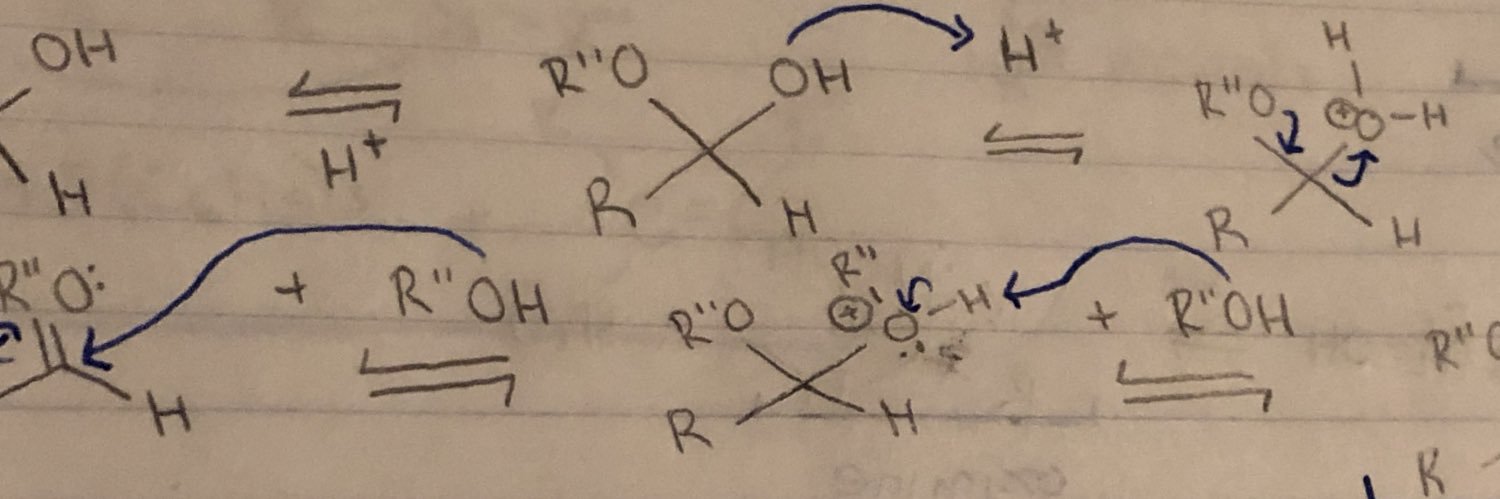 OH R''O OH H+ H
H+ R''O ⊕O-H
H R H R H
R''O: + R''OH R''O R'' ⊕O-H + R''OH R''O
H R H R